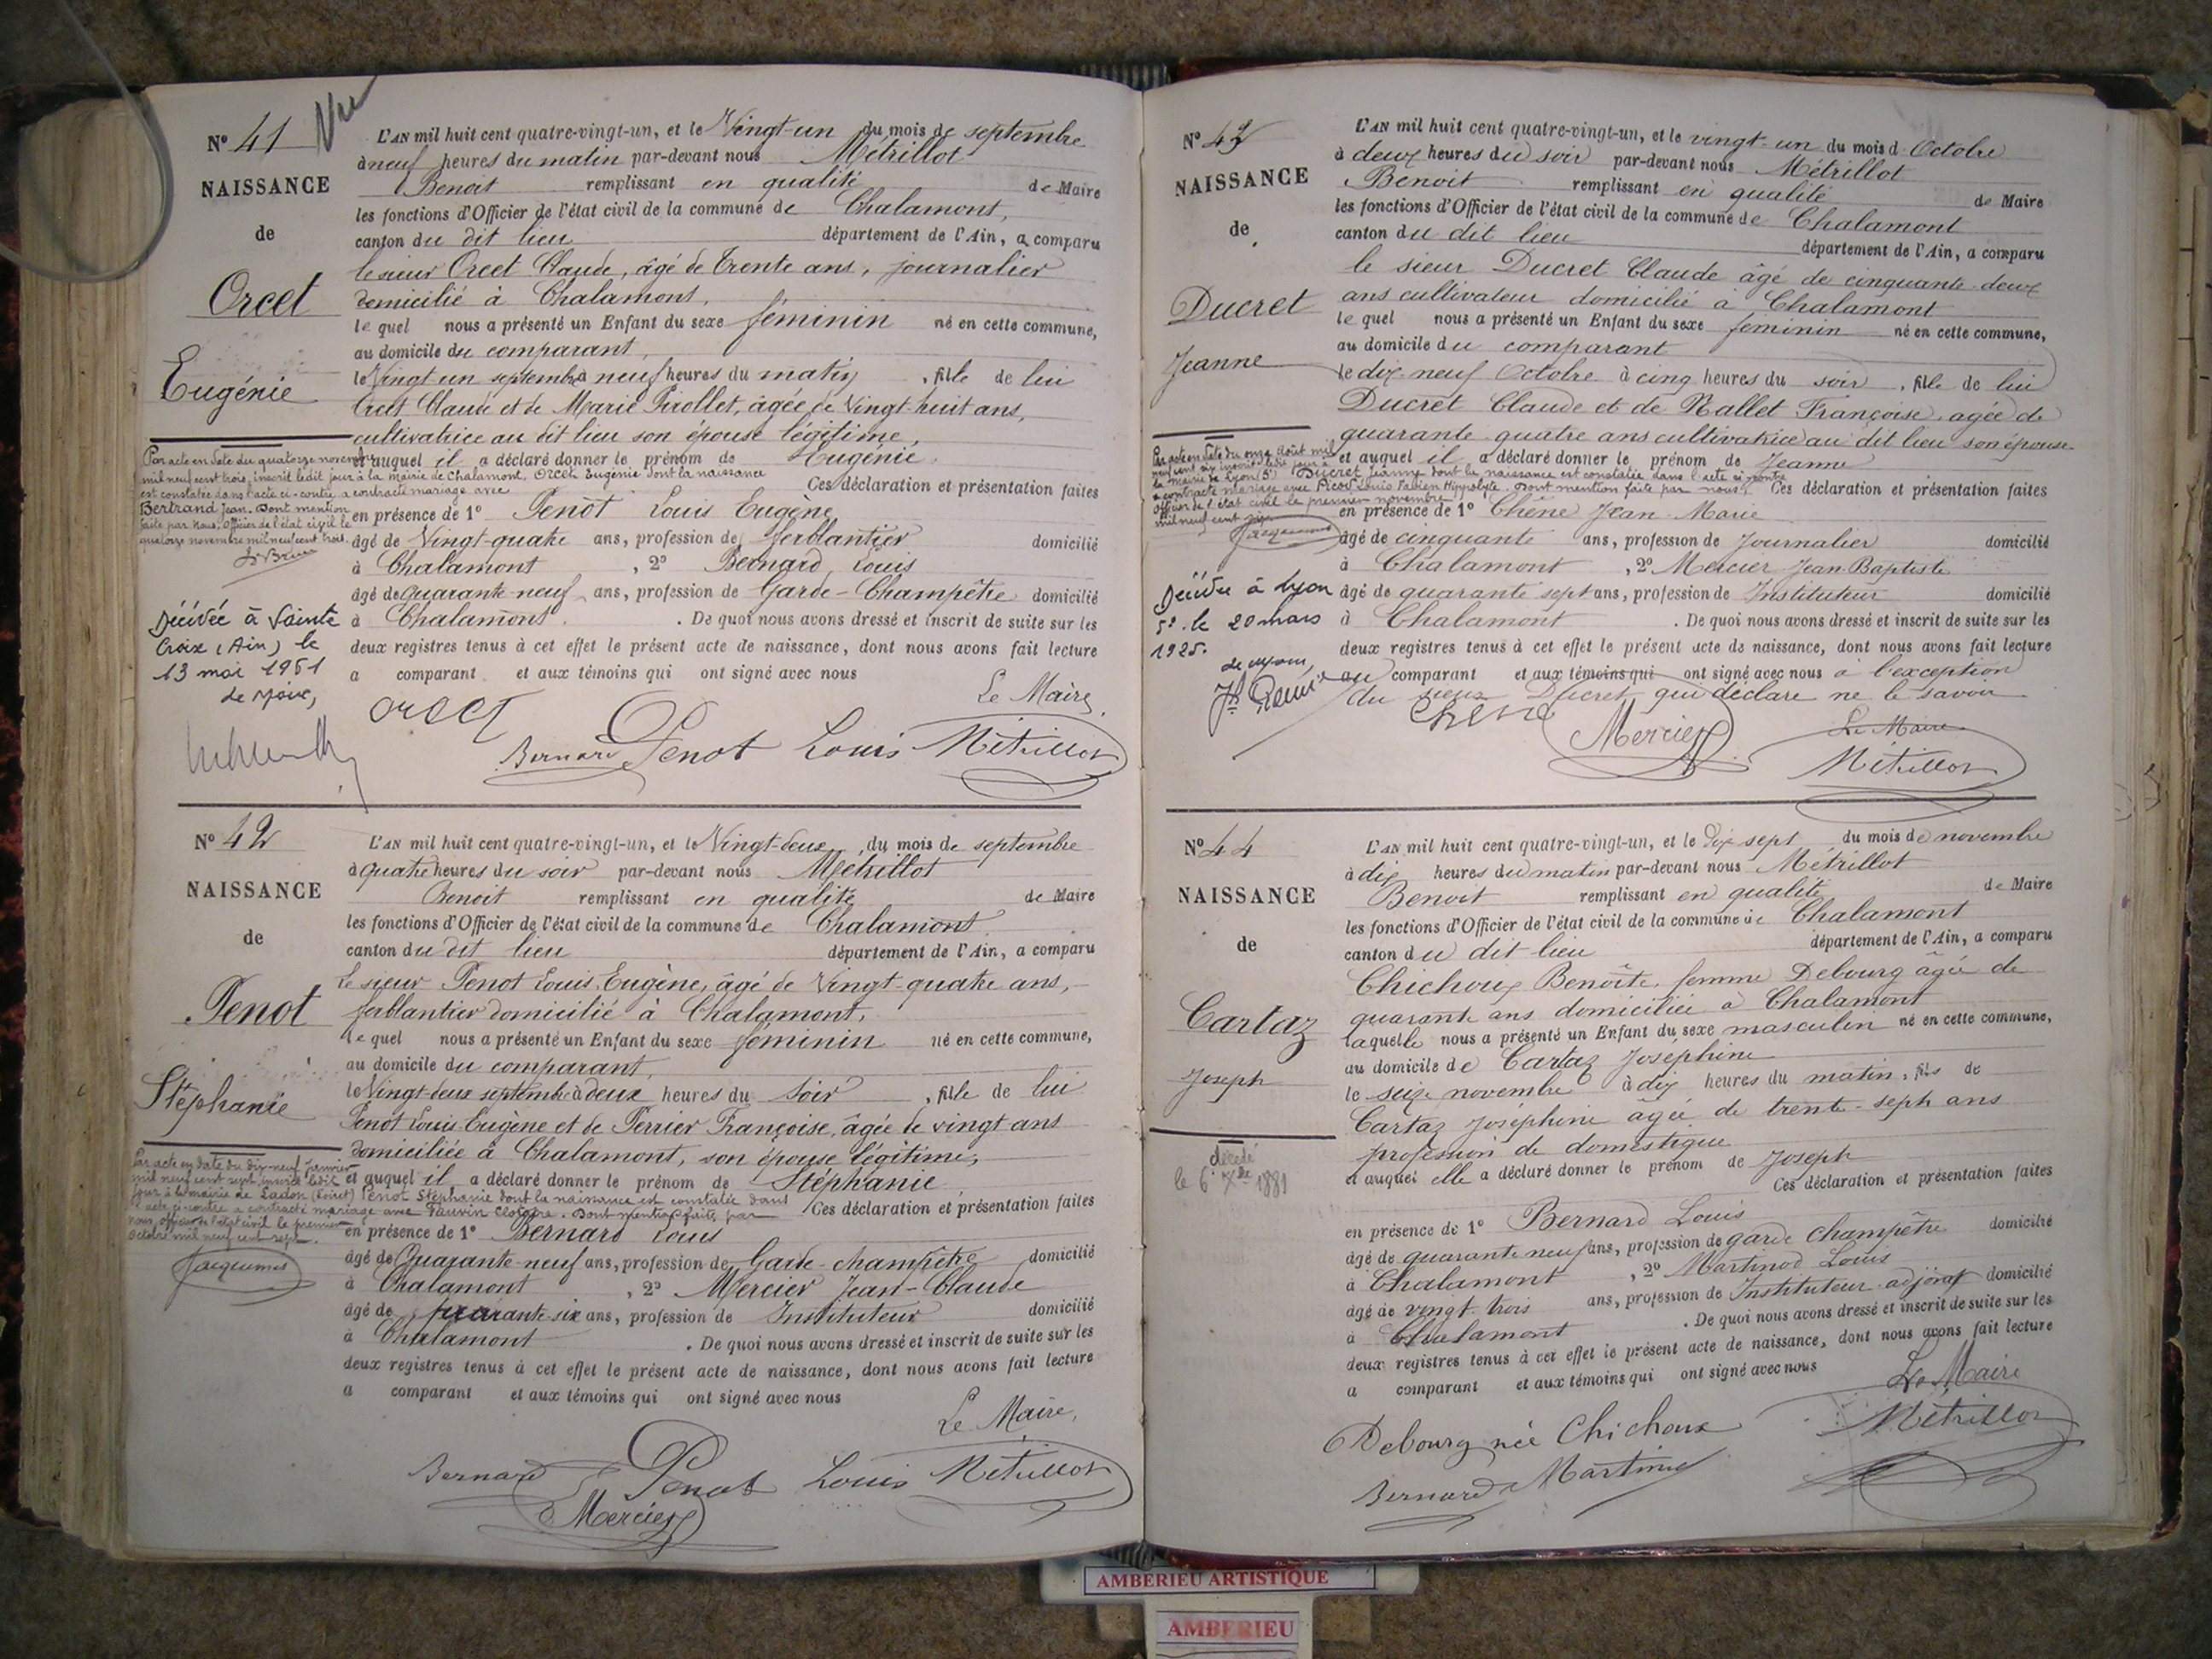 Nº 41
Vu
NAISSANCE
de
Orcet
Eugénie
L'AN mil huit cent quatre-vingt-un, et le Vingt-un du mois de septembre
à neuf heures du matin par-devant nous Métrillot
Benoit remplissant en qualité de Maire
les fonctions d'Officier de l'état civil de la commune de Chalamont,
canton du dit lieu département de l'Ain, a comparu
le sieur Orcet Claude, âgé de Trente ans, journalier
domicilié à Chalamont,
lequel nous a présenté un Enfant du sexe féminin né en cette commune,
au domicile du comparant,
le Vingt un septembre à neuf heures du matin, fille de lui
Orcet Claude et de Marie Pirollet, âgée de Vingt-huit ans,
cultivatrice au dit lieu son épouse légitime,
et auquel il a déclaré donner le prénom de Eugénie.
Ces déclaration et présentation faites
en présence de 1º Penot Louis Eugène
âgé de Vingt-quatre ans, profession de ferblantier domicilié
à Chalamont, 2º Bernard Louis
âgé de quarante-neuf ans, profession de Garde-Champêtre domicilié
à Chalamont. De quoi nous avons dressé et inscrit de suite sur les
deux registres tenus à cet effet le présent acte de naissance, dont nous avons fait lecture
a comparant et aux témoins qui ont signé avec nous
Le Maire,
orcet
Bernard Penot Louis Métrillot
Par acte en date du quatorze novembre
mil neuf cent trois, inscrit ledit jour à la mairie de Chalamont, Orcet Eugénie dont la naissance
est constatée dans l'acte ci-contre a contracté mariage avec
Bertrand Jean. Dont mention
faite par Nous, officier de l'état civil le
quatorze novembre mil neuf cent trois.
Décédée à Sainte
Croix (Ain) le
13 mai 1951
Nº 42
NAISSANCE
de
Penot
Stéphanie
L'AN mil huit cent quatre-vingt-un, et le Vingt-deux du mois de septembre
à quatre heures du soir par-devant nous Métrillot
Benoit remplissant en qualité de Maire
les fonctions d'Officier de l'état civil de la commune de Chalamont
canton du dit lieu département de l'Ain, a comparu
le sieur Penot Louis Eugène, âgé de Vingt-quatre ans,
ferblantier domicilié à Chalamont,
lequel nous a présenté un Enfant du sexe féminin né en cette commune,
au domicile du comparant,
le Vingt-deux septembre à deux heures du soir, fille de lui
Penot Louis Eugène et de Perrier Françoise, âgée de vingt ans
domiciliée à Chalamont, son épouse légitime,
et auquel il a déclaré donner le prénom de Stéphanie
Ces déclaration et présentation faites
en présence de 1º Bernard Louis
âgé de Quarante-neuf ans, profession de Garde-champêtre domicilié
à Chalamont, 2º Mercier Jean-Claude
âgé de quarante-six ans, profession de Instituteur domicilié
à Chalamont. De quoi nous avons dressé et inscrit de suite sur les
deux registres tenus à cet effet le présent acte de naissance, dont nous avons fait lecture
a comparant et aux témoins qui ont signé avec nous
Le Maire,
Bernard Penot Louis Métrillot
Mercier
Par acte en date du dix-neuf janvier
mil neuf cent sept inscrit ledit
jour à la mairie de Ladon (Loiret) Penot Stéphanie dont la naissance est constatée dans
l'acte ci-contre a contracté mariage avec Fauvin Clotaire. Dont mention faite par
nous, officier de l'état civil le premier
octobre mil neuf cent sept.
Jacquemet
Nº 43
NAISSANCE
de
Ducret
Jeanne
L'AN mil huit cent quatre-vingt-un, et le vingt-un du mois d Octobre
à deux heures du soir par-devant nous Métrillot
Benoit remplissant en qualité de Maire
les fonctions d'Officier de l'état civil de la commune de Chalamont
canton du dit lieu département de l'Ain, a comparu
le sieur Ducret Claude âgé de cinquante-deux
ans cultivateur domicilié à Chalamont
lequel nous a présenté un Enfant du sexe féminin né en cette commune,
au domicile du comparant
le dix-neuf Octobre à cinq heures du soir, fille de lui
Ducret Claude et de Rallet Françoise, agée de
quarante quatre ans cultivatrice au dit lieu son épouse
et auquel il a déclaré donner le prénom de Jeanne
Ces déclaration et présentation faites
en présence de 1º Chêne Jean Marie
âgé de cinquante ans, profession de Journalier domicilié
à Chalamont, 2º Mercier Jean-Baptiste
âgé de quarante sept ans, profession de Instituteur domicilié
à Chalamont. De quoi nous avons dressé et inscrit de suite sur les
deux registres tenus à cet effet le présent acte de naissance, dont nous avons fait lecture
au comparant et aux témoins qui ont signé avec nous à l'exception
du sieur Ducret qui déclare ne le savoir
Le Maire
chêne Mercier Métrillot
Par acte en date du onze août mil
neuf cent six inscrit ledit jour à
la mairie de Lyon (5e) Ducret Jeanne dont la naissance est constatée dans l'acte ci-contre
a contracté mariage avec Picot Louis Fabien Hippolyte. Dont mention faite par nous,
officier de l'état civil le premier novembre
mil neuf cent six
Jacquemet
Décédée à Lyon
5e le 20 mars
1925.
Nº 44
NAISSANCE
de
Cartaz
Joseph
L'AN mil huit cent quatre-vingt-un, et le Dix sept du mois de novembre
à dix heures du matin par-devant nous Métrillot
Benoit remplissant en qualité de Maire
les fonctions d'Officier de l'état civil de la commune de Chalamont
canton du dit lieu département de l'Ain, a comparu
Chichoux Benoîte, femme Debourg âgée de
quarante ans domiciliée à Chalamont
laquelle nous a présenté un Enfant du sexe masculin né en cette commune,
au domicile de Cartaz Joséphine
le seize novembre à dix heures du matin, fils de
Cartaz Joséphine âgée de trente-sept ans
profession de domestique
et auquel elle a déclaré donner le prénom de Joseph
Ces déclaration et présentation faites
en présence de 1º Bernard Louis
âgé de quarante neuf ans, profession de garde champêtre domicilié
à Chalamont, 2º Martinod Louis
âgé de vingt-trois ans, profession de Instituteur-adjoint domicilié
à Chalamont. De quoi nous avons dressé et inscrit de suite sur les
deux registres tenus à cet effet le présent acte de naissance, dont nous avons fait lecture
a comparant et aux témoins qui ont signé avec nous
Le Maire
Debourg née Chichoux Métrillot
Bernard Martinod
décédé
le 6 Xbre 1881
AMBERIEU ARTISTIQUE
AMBERIEU